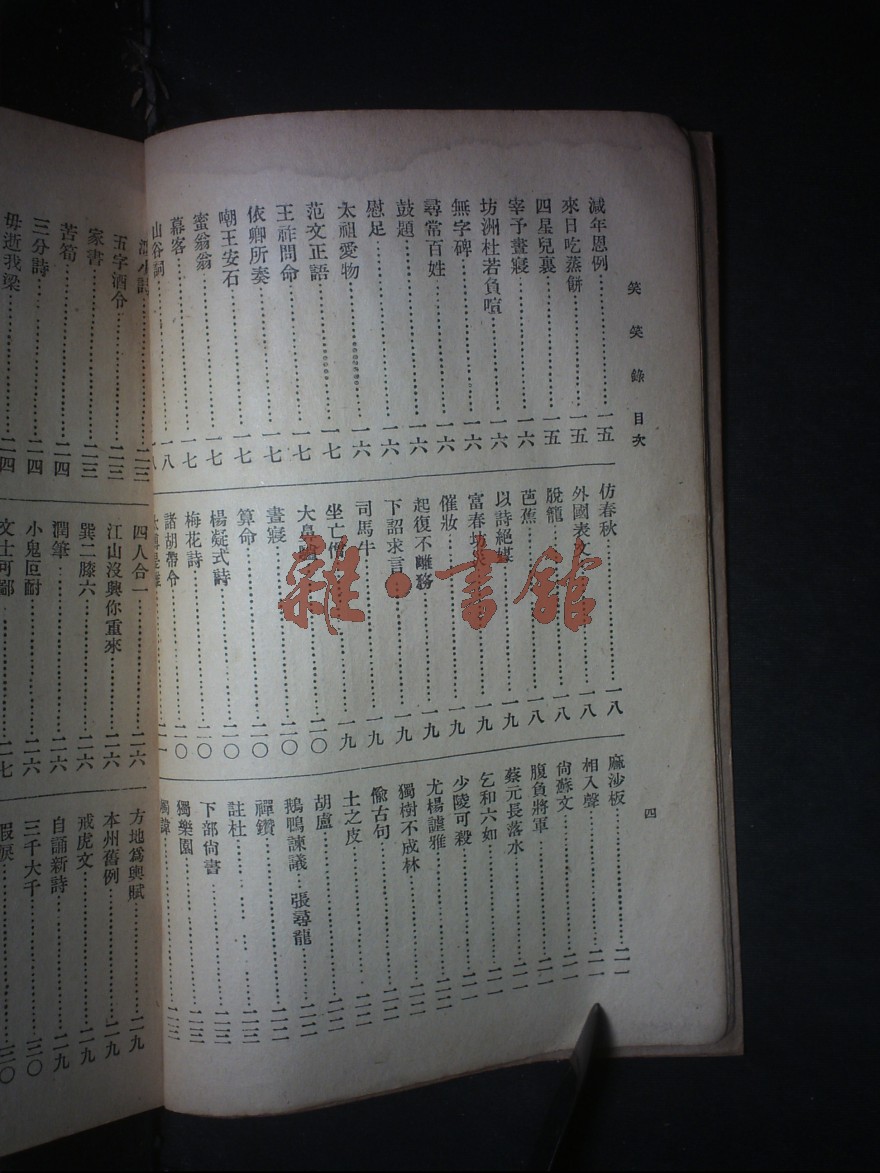 笑笑錄 目次
四
減年恩例⋯⋯一五
來日吃蒸餅⋯⋯一五
四星兒裏⋯⋯一五
宰予晝寢⋯⋯一六
坊洲杜若負喧⋯⋯一六
無字碑⋯⋯一六
尋常百姓⋯⋯一六
鼓題⋯⋯一六
慰足⋯⋯一六
太祖愛物⋯⋯一六
范文正語⋯⋯一七
王祚問命⋯⋯一七
依卿所奏⋯⋯一七
嘲王安石⋯⋯一七
蜜翁翁⋯⋯一七
幕客⋯⋯一八
山谷詞⋯⋯一八
仿春秋⋯⋯一八
外國表文⋯⋯一八
脫籠⋯⋯一八
芭蕉⋯⋯一八
以詩絕媒⋯⋯一九
富春坊⋯⋯一九
催妝⋯⋯一九
起復不離務⋯⋯一九
下詔求言⋯⋯一九
司馬牛⋯⋯一九
坐亡僧⋯⋯一九
大鼻⋯⋯二〇
晝寢⋯⋯二〇
算命⋯⋯二〇
楊凝式詩⋯⋯二〇
梅花詩⋯⋯二〇
諸胡帶令⋯⋯二〇
⋯⋯二一
麻沙板⋯⋯二一
相入聲⋯⋯二一
尙蘇文⋯⋯二一
腹負將軍⋯⋯二一
蔡元長落水⋯⋯二一
乞和六如⋯⋯二一
少陵可殺⋯⋯二一
尤楊謔雅⋯⋯二二
獨樹不成林⋯⋯二二
偸古句⋯⋯二二
土之皮⋯⋯二二
胡盧⋯⋯二二
鵝鴨諫議 張尋龍⋯⋯二二
禪鑽⋯⋯二二
註杜⋯⋯二三
下部尙書⋯⋯二三
獨樂園⋯⋯二三
諱⋯⋯二三
小詩⋯⋯二三
五字酒令⋯⋯二三
家書⋯⋯二三
苦筍⋯⋯二四
三分詩⋯⋯二四
毋逝我梁⋯⋯二四
四人合一⋯⋯二六
江山沒興你重來⋯⋯二六
巽二滕六⋯⋯二六
潤筆⋯⋯二六
小鬼叵耐⋯⋯二六
文士可鄙⋯⋯二七
方地爲輿賦⋯⋯二九
本州舊例⋯⋯二九
戒虎文⋯⋯二九
自誦新詩⋯⋯二九
三千大千⋯⋯三〇
⋯⋯三〇
雜·書館